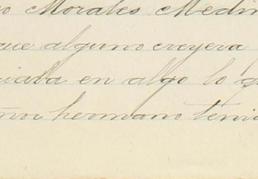 no Morales Medin
que alguno creyera
iaba en algo lo q
hermano teni